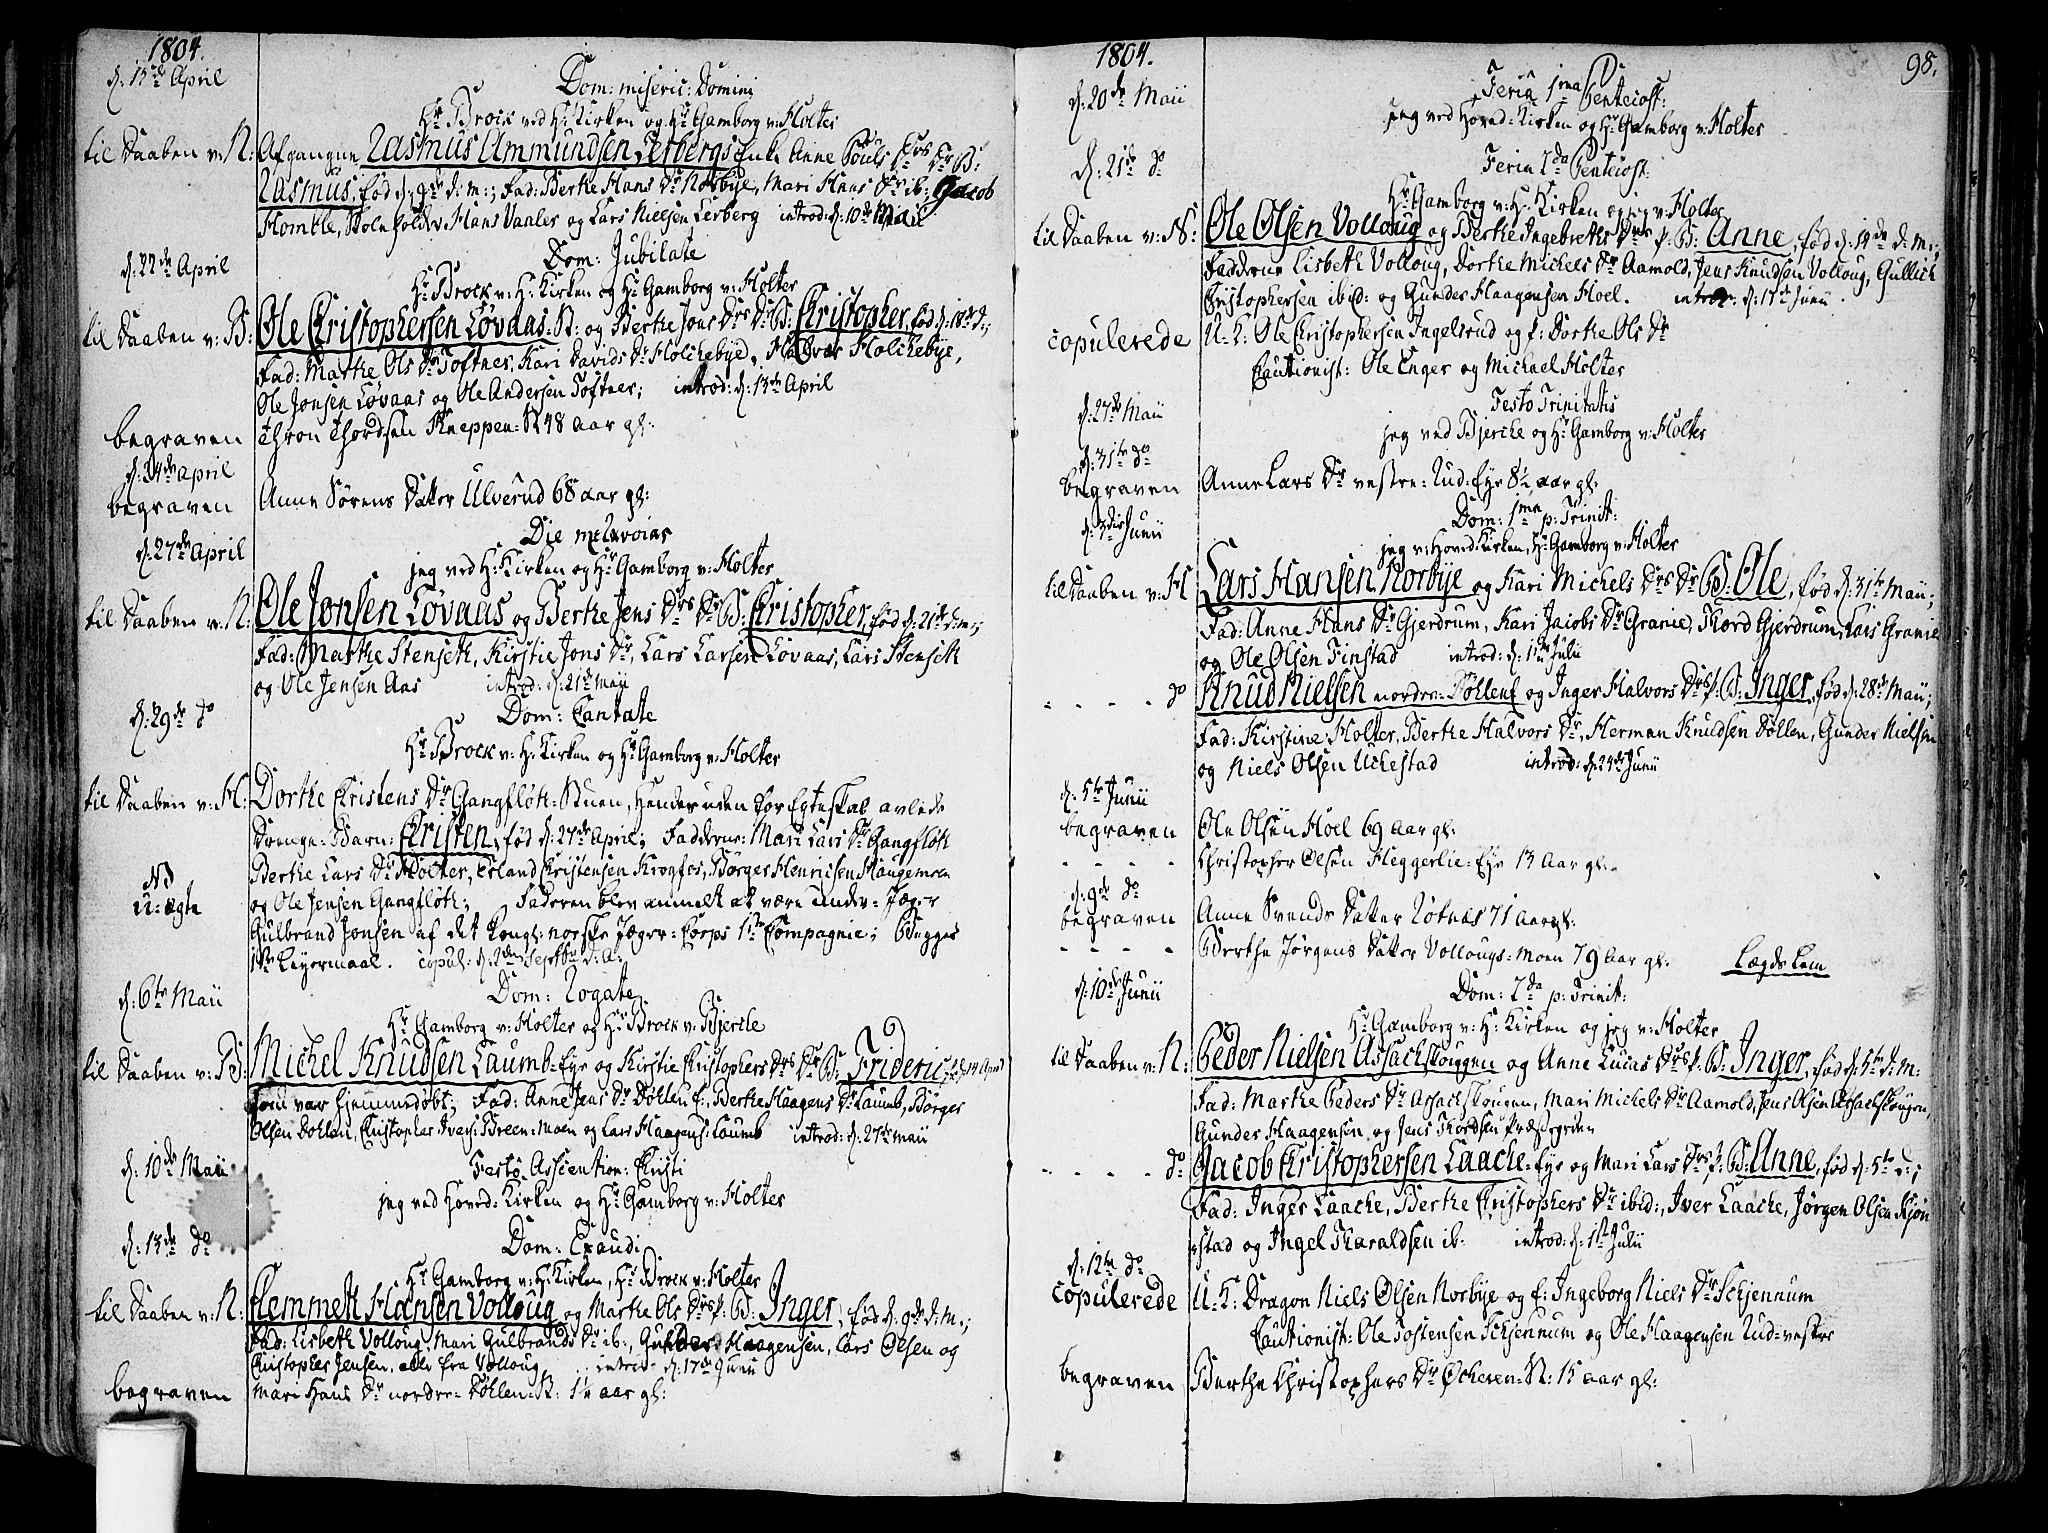 1804.
d: 15de April
Dom: miseric: Domini
Hr Brock ved H: Kirken og Hr Gamborg v: Holter
til Daaben v: N: Afgangne Rasmus Ammundsen Lerbergs Enke Anne Pouls Drs Dr B:
Rasmus, fød d: 9de d: m:; Fad: Berthe Hans Dr Norbye, Mari Hans Dr ib: Jacob
Homble, Hans Vaaler og Lars Nielsen Lerberg introd: d: 10de Maii
d: 22de April
Dom: Jubilate
Hr Brock v: H: Kirken og Hr Gamborg v: Holter
til Daaben v: B: Ole Christophersen Løvaas: B: og Berthe Jons Drs Dr B: Christopher, fød d: 18de d:;
Fad: Marthe Ols Dr Toftner, Kari Davids Dr Holchebye, Halvor Holchebye,
Ole Jonsen Løvaas og Ole Andersen Toftner; introd: d: 13de April
begraven Thron Thordsen Kneppen: N 48 aar gl:
d: 24de april
begraven Anne Sørens Datter Ulverud 68 aar gl:
d: 27de April
Die
jeg ved H: Kirken og Hr Gamborg v: Holter
til Daaben v: N: Ole Jonsen Løvaas og Berthe Jens Drs Dr B: Christopher, fød d: 21de d: m:;
Fad: Marthe Stenseth, Kirstie Jons Dr, Lars Larsen Løvaas, Lars Stenseth
og Ole Jensen Aas introd: d: 21de Maii
d: 29de do
Dom: Cantate
Hr Brock v: H: Kirken og Hr Gamborg v: Holter
til Daaben v: H: Dorthe Christens Dr Gangfløth: Stuen, hendes uden for Egteskab avlede
Drenge-Barn: Christen, fød d: 27de April; Fadderne: Mari Lars Dr Gangfløth
Berthe Lars Dr Holter, Erland Christensen Krogfos, Børger Henricsen Haugemoen
NB
u-ægte
og Ole Jensen Gangfløth; Faderen blev anmelt at være Under-Jæger
Gulbrand Jonsen af det kongl: norske Jæger-Corps 1ste Compagnie; Begges
1ste Leyermaal. copul: d: 2den Septbr d: A:
d: 6te Maii
Dom: Rogate
Hr Gamborg v: Holter og Hr Brock v: Bjercke
til Daaben v: B: Michel Knudsen Laumb-Eye og Kirstie Christophers Drs Dr B: Frideric, fød 14 April
som var hjemmedøbt; Fad: Anne Jens Dr Døhlen E:, Berthe Haagens Dr Laumb, Børger
Olsen Døhlen, Christopher Ivers: Breen-Moen og Lars Haagens: Laumb introd: d: 27de Maii
d: 10de Maii
Festo Ascention: Christi
jeg ved Hoved-Kirken og Hr Gamborg v: Holter
d: 13de do
Dom: Exaudi
Hr Gamborg v: H: Kirken, Hr Brock v: Holter
til Daaben v: N: Clemmeth Hansen Volloug og Marthe Ols Drs p: B: Inger, fød d: 9de d: m:;
Fad: Lisbeth Volloug, Mari Gulbrands Dr ib:, Gunder Haagensen, Lars Olsen og
Christopher Jensen, alle fra Volloug introd: d: 17de Junii
begraven Mari Hans Dr nordre-Døhlen: N: 1½ aar gl:
98.
1804.
d: 20de Maii
Feria 1ma Pentecost:
jeg ved Hoved-Kirken og Hr Gamborg v: Holter
d: 21de do
Feria 2da Pentecost:
Hr Gamborg v: H: Kirken og jeg v: Holter
til Daaben v: N: Ole Olsen Volloug og Berthe Ingebreths Drs p: B: Anne, fød d: 14de d: m:;
Fadderne Lisbeth Volloug, Dorthe Michels Dr Aamold, Jens Knudsen Volloug, Gullich
Christophersen ibid: og Gunder Haagensen Hoel. introd: d: 17de Junii.
copulerede U: K: Ole Christophersen Ingelsrud og p: Dorthe Ols Dr
Cautionist: Ole Enger og Michael Holter
d: 27de Maii
Festo Trinitatis
jeg ved Bjercke og Hr Gamborg v: Holter
d: 31te do
begraven Anne Lars Dr vestre-Rud-Eye 8½ aar gl:
d: 3die Junii
Dom: 1ma p: Trinit:
jeg v: Hoved-Kirken, Hr Gamborg v: Holter
til Daaben v: H Lars Hansen Norbye og Kari Michels Drs Dr B: Ole, fød d: 31te Maii;
Fad: Anne Hans Dr Gjerdrum, Kari Jacobs Dr Granie, Thord Gjerdrum, Lars Granie
og Ole Olsen Finstad introd: d: 1ste Julii
- - - - do Knud Nielsen nordre-Døhlen E og Inger Halvors Drs p: B: Inger, fød d: 28de Maii;
Fad: Kirstine Holter, Berthe Halvors Dr, Herman Knudsen Døhlen, Gunder Nielsen
og Niels Olsen Uchestad introd: d: 24de Junii
d: 5te Junii
begraven Ole Olsen Hoel 69 Aar gl:
- - - - Christopher Olsen Heggerlie-Eye 13 Aar gl:
d: 9de do
begraven Anne Svends Datter Rotnæs 71 Aar gl:
- - - - Berthe Jørgens Datter Vollougs-moen 79 Aar gl: Lægds Lem
d: 10de Junii
Dom: 2da p: Trinit:
Hr Gamborg v: H: Kirken og jeg v: Holter
til Daaben v: N: Peder Nielsen Assachskougen og Anne Lucas Drs p: B: Inger, fød d: 5te d: m:
Fad: Marthe Peders Dr Assachskougen, Mari Michels Dr Aamold, Jens Olsen Assachskougen,
Gunder Haagensen og Jens Thordsen Præstegrden
- - - - do Jacob Christophersen Laache-Eye og Mari Lars Drs p: B: Anne, fød d: 5te d:;
Fad: Inger Laache, Berthe Christophers Dr ibid:, Iver Laache, Jørgen Olsen Kjøn
stad og Ingel Tharaldsen ib: introd: d: 1ste Julii
d: 12te do
copulerede U: K: Dragon Niels Olsen Norbye og E: Ingeborg Niels Dr Schjennum
Cautionist: Ole Tostensen Schjennum og Ole Haagensen Rud-vestre
begraven Berthe Christophers Dr Ocheren: N: 15 aar gl: